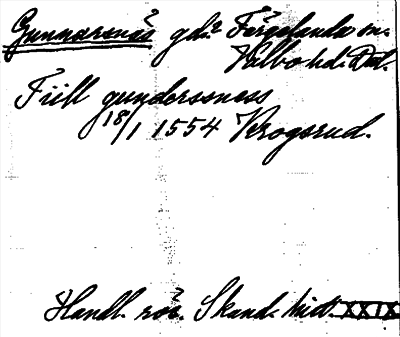 Gunnarsnäs gd: Färgelanda sn.
Valbo hd. Dal.
Tiill gunderssness
18/1 1554 Krogsrud.
Handl. rör. Skand. hist. XXIX